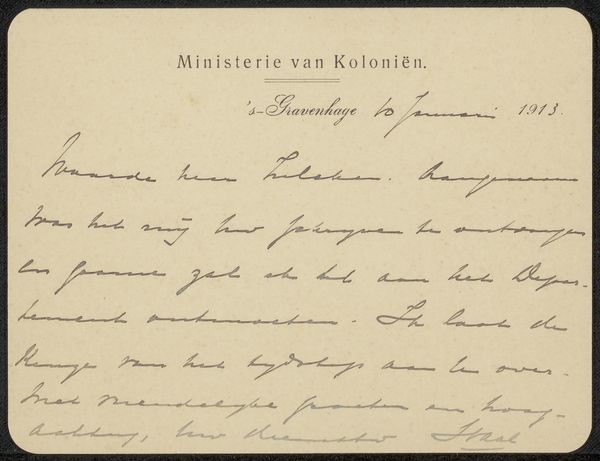 Ministerie van Koloniën.
's-Gravenhage 10 Januari 1913.
Waarde heer Zilcken. Aangenaam
was het mij Uw schrijven te ontvangen
en gaarne zal ik U aan het Depar-
tement ontmoeten. Ik laat de
keuze van het tijdstip aan U over.
Met vriendelijke groeten en hoog-
achting, Uw dienstw Staal